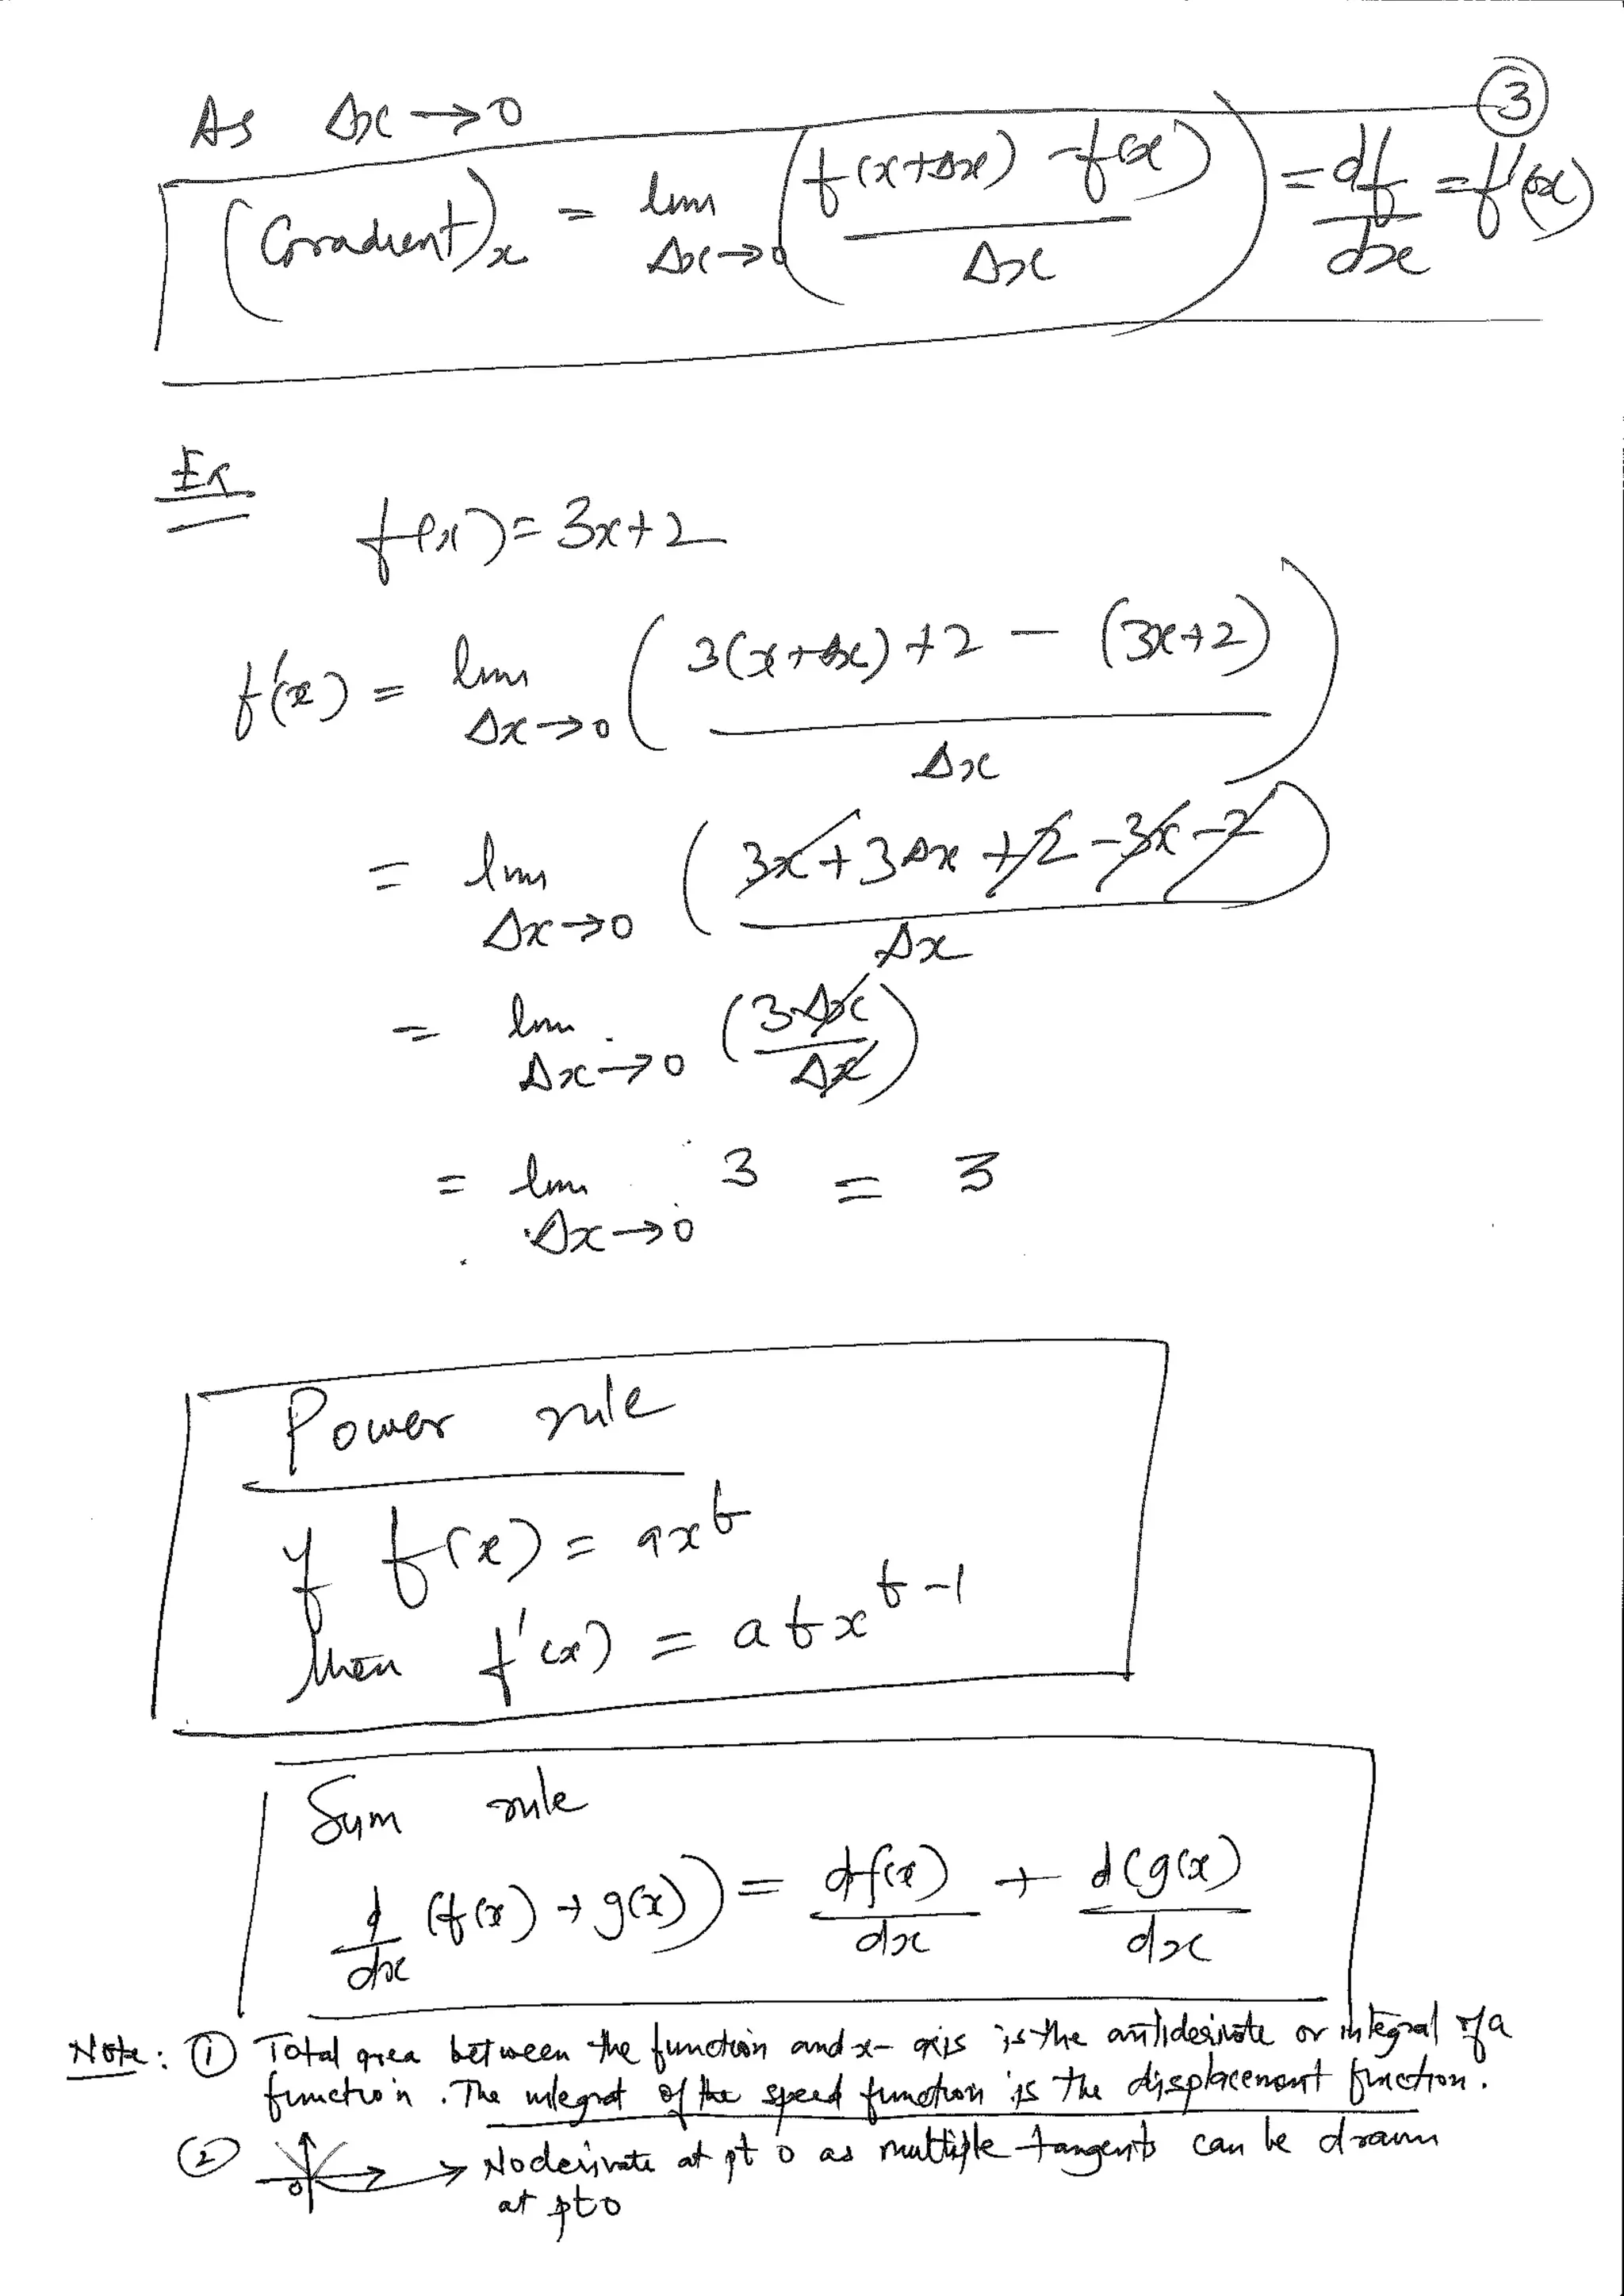 ③
As Δx → 0
(Gradient)x = lim Δx→0 ( (f(x+Δx) - f(x)) / Δx ) = df/dx = f'(x)
Ex
f(x) = 3x+2
f'(x) = lim Δx→0 ( (3(x+Δx)+2 - (3x+2)) / Δx )
= lim Δx→0 ( (3x+3Δx+2-3x-2) / Δx )
= lim Δx→0 (3Δx / Δx)
= lim Δx→0 3 = 3
Power rule
If f(x) = ax^b
then f'(x) = abx^(b-1)
Sum rule
d/dx (f(x) + g(x)) = df(x)/dx + d(g(x)/dx
Note: ① Total area between the function and x-axis is the antiderivate or integral of a
function. The integral of the speed function is the displacement function.
② 0 → No derivate at pt 0 as multiple tangents can be drawn
at pt 0